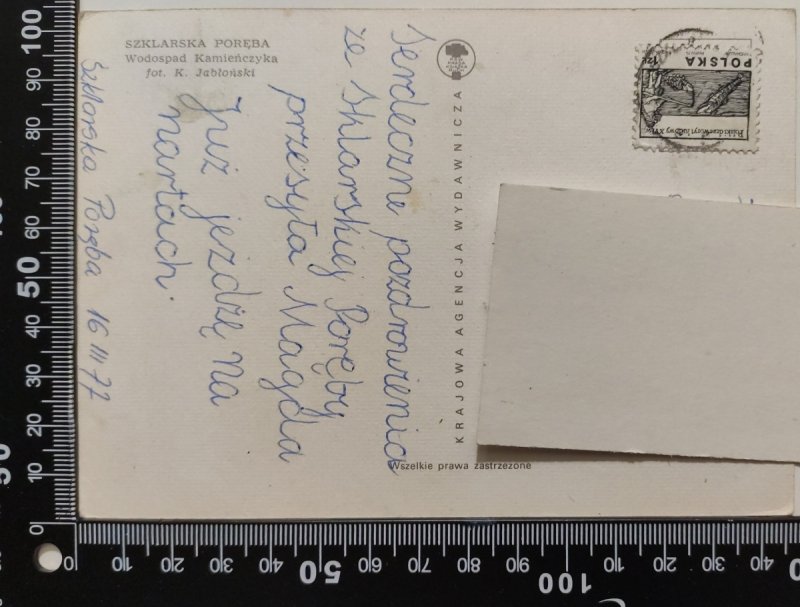 SZKLARSKA PORĘBA
Wodospad Kamieńczyka
fot. K. Jabłoński
Szklarska Poręba 16 III 77
Serdeczne pozdrowienia
ze Szklarskiej Poręby
przesyła Magda
Już jeżdżę na
nartach.
KRAJOWA AGENCJA WYDAWNICZA
Wszelkie prawa zastrzeżone
POLSKA
100
90
80
70
60
50
40
30
20
10
0
0
10
20
30
40
50
60
70
80
90
100
10
20
30
40